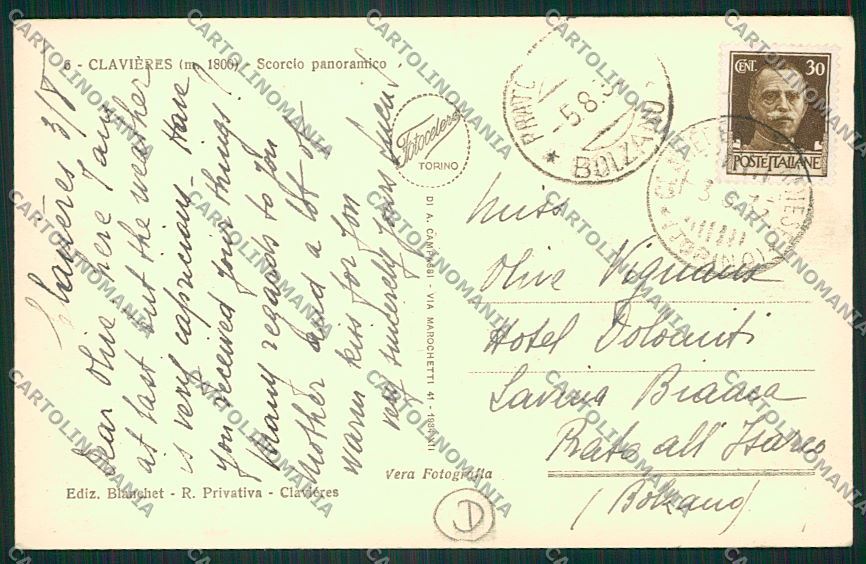 6 - CLAVIÈRES (m. 1800) Scorcio panoramico
Clavières 3/8
Dear Olive here I am
at last but the weather
is very capricious. Have
you received your things?
Many regards to your
Mother and a lot of
warm kiss for you
very sincerely yours
Ediz. Blanchet - R. Privativa - Clavières
Fotocelere
TORINO
DI A. CAMPASSI - VIA MAROCHETTI 41 - 1934-XII
Vera Fotografia
PRATO
BOLZANO
5.8.3
CENT. 30
POSTE ITALIANE
Miss
Olive Vignaus
Hotel Dolomiti
Savina Bianca
Prato all'Isarco
(Bolzano)
CARTOLINOMANIA